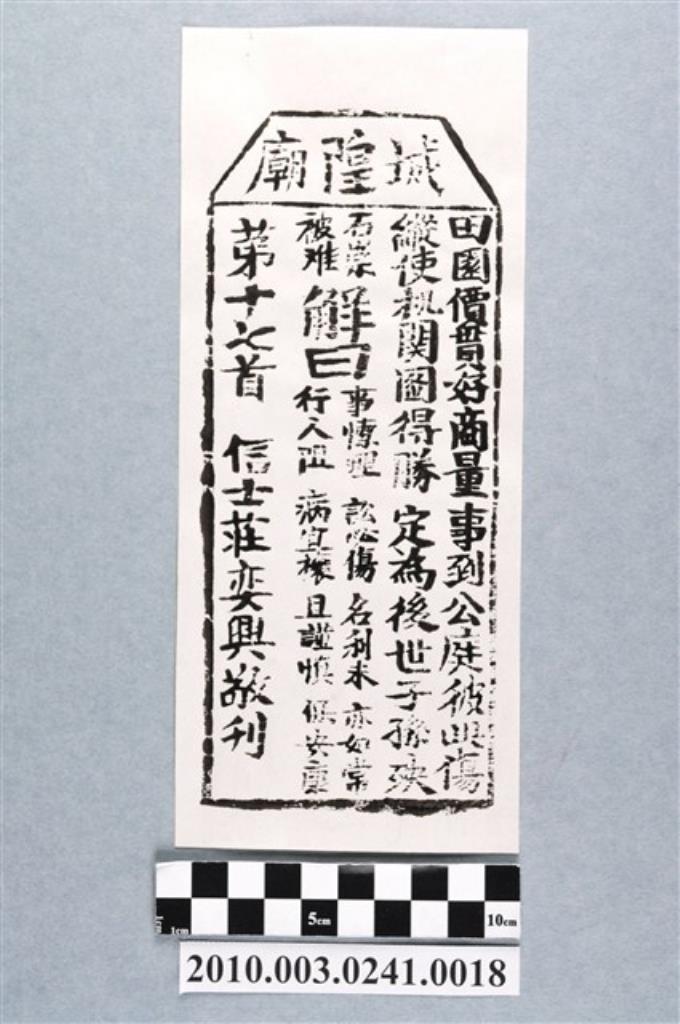 城隍廟
田園價貫好商量事到公庭彼此傷
縱使机関圖得勝定為後世子孫殃
石崇
被难
解曰
事慎理 訟必傷 名利未 亦如常
行人阻 病宜禳 且謹慎 保安康
第十七首 信士莊奕興敬刊
1cm 5cm 10cm
2010.003.0241.0018